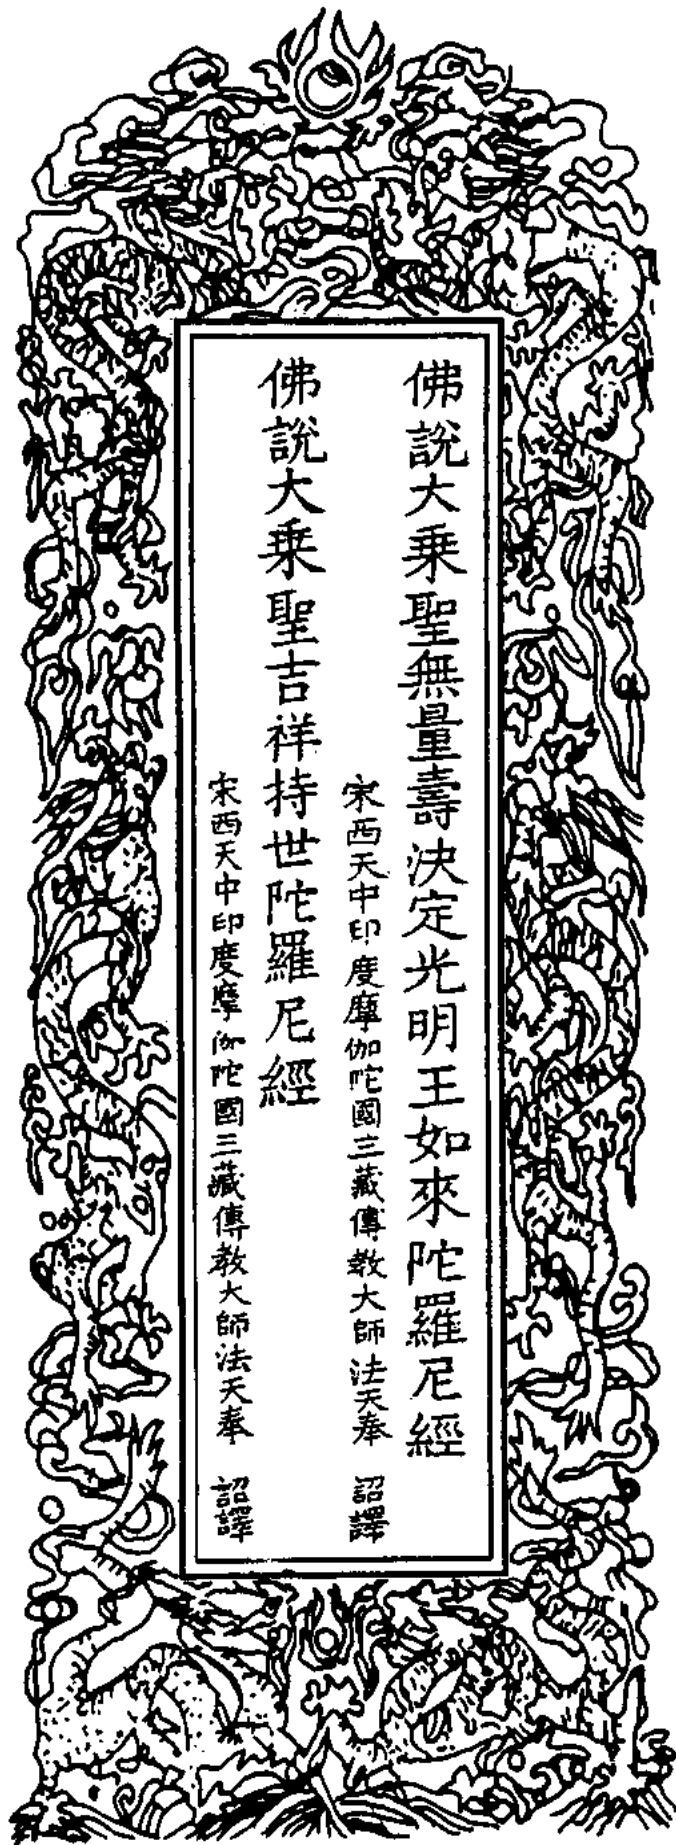 佛說大乘聖無量壽決定光明王如來陀羅尼經
宋西天中印度摩伽陀國三藏傳教大師法天奉 詔譯
佛說大乘聖吉祥持世陀羅尼經
宋西天中印度摩伽陀國三藏傳教大師法天奉 詔譯